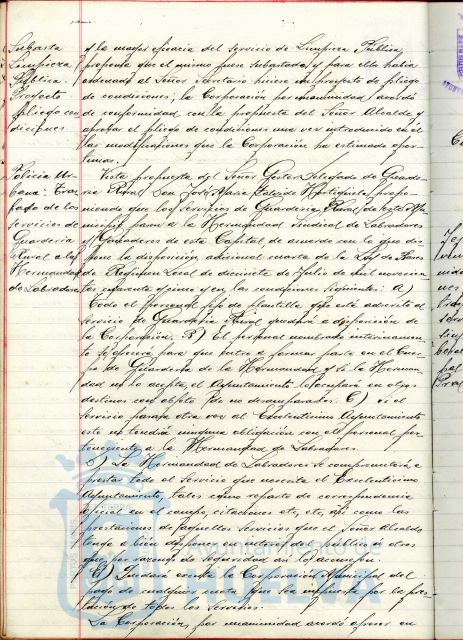 Subasta
Limpieza
Pública.
Proyecto
pliego con
diciones
y la mayor eficacia del servicio de Limpieza Pública,
proponía que el mismo fuera subastado, y para ello había
ordenado al Señor Secretario hiciese un proyecto de pliego
de condiciones; la Corporación por unanimidad acordó
de conformidad con la propuesta del Señor Alcalde y
aprobar el pliego de condiciones una vez introducido en él
las modificaciones que la Corporación ha estimado opor-
tunas.
Policía Ur-
bana: Tras-
paso de los
servicios de
Guardería
Rural a la
Hermandad
de Labradores
Vista propuesta del Señor Gestor Delegado de Guarde-
ría Rural Don José María
niendo que los Servicios de Guardería Rural de este Mu-
nicipio pasen a la Hermandad Sindical de Labradores
y Ganaderos de esta Capital, de acuerdo con lo que dis-
pone la disposición adicional cuarta de la Ley de Bases
de Régimen Local de diecisiete de Julio de mil novecien-
tos cuarenta y cinco y en las condiciones siguientes: A)
Todo el personal fijo de plantilla que está adscrito al
servicio de Guardería Rural quedará a disposición de
la Corporación. B) El personal nombrado interinamen-
te se ofrecerá para que entre a formar parte en el Cuer-
po de Guardería de la Hermandad y si la Herman-
dad no lo acepta, el Ayuntamiento lo ocupará en otros
destinos con objeto de no desampararlos. C) Si el
servicio pasara otra vez al Excelentísimo Ayuntamiento
este no tendría ninguna obligación con el personal per-
teneciente a la Hermandad de Labradores.
D) La Hermandad de Labradores se comprometerá a
prestar todo el Servicio que necesite el Excelentísimo
Ayuntamiento, tales como reparto de correspondencia
oficial en el campo, citaciones etc, etc, así como las
prestaciones de aquellos servicios que el Señor Alcalde
tenga a bien disponer en interés del público u otros
que por razones de seguridad así lo aconsejen.
E) Quedará exenta la Corporación Municipal del
pago de cualquier cuota que sea impuesta por la pres-
tación de todos los Servicios.
La Corporación, por unanimidad acordó ofrecer en
Ayuntamiento de
HUELVA